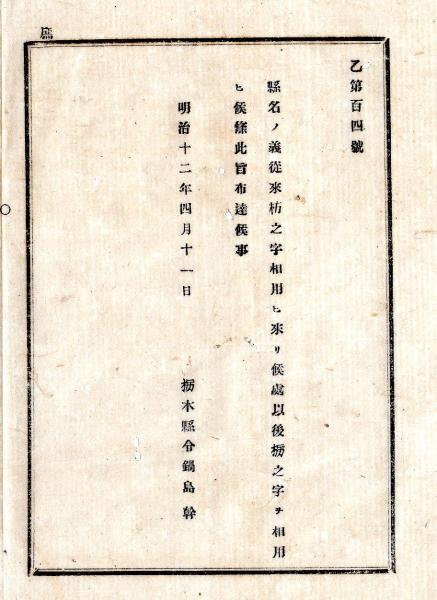 庶
乙第百四號
縣名ノ義從來栃之字相用ヒ來リ候處以後橡之字ヲ相用
ヒ候條此旨布達候事
明治十二年四月十一日
栃木縣令鍋島幹